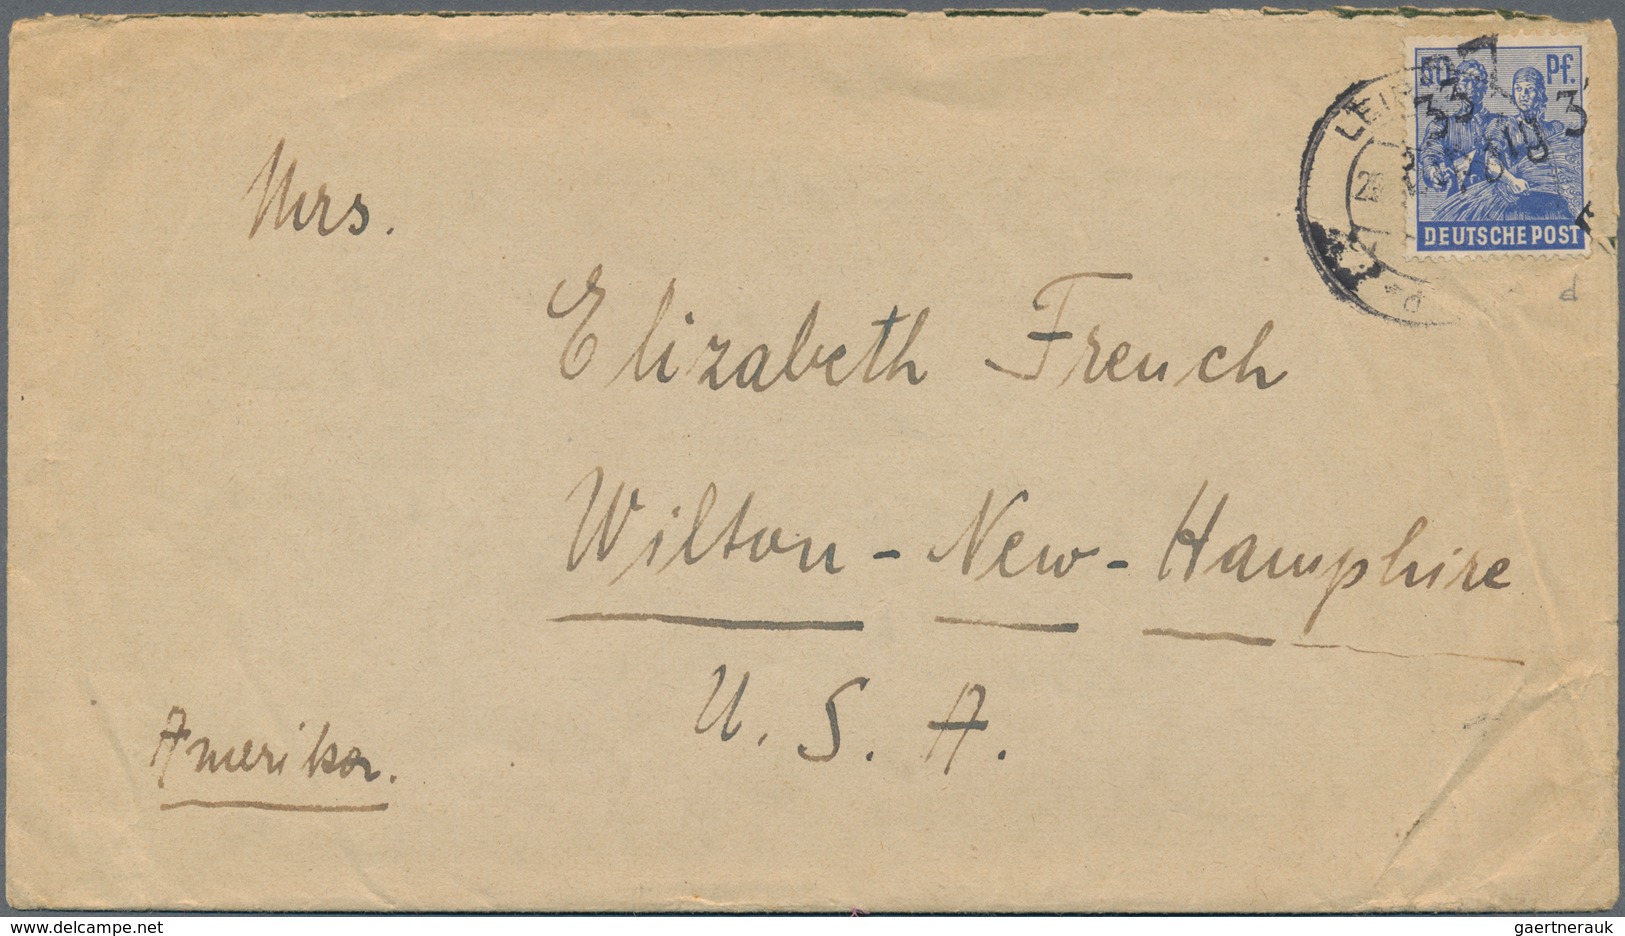 50 Pf.
LEIPZIG
33 3
DEUTSCHE POST
d
Mrs.
Elizabeth French
Wilton - New - Hampshire
U. S. A.
Amerika.
gaertnerauk